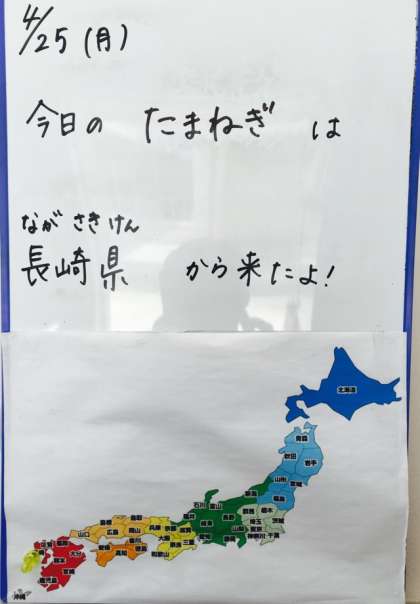 4/25(月)
今日の たまねぎ は
ながさきけん
長崎県 から来たよ!
北海道
青森
秋田
岩手
山形
宮城
福島
新潟
石川
富山
福井
岐阜
長野
群馬
栃木
埼玉
茨城
山梨
東京
神奈川
千葉
愛知
静岡
島根
鳥取
兵庫
京都
滋賀
山口
広島
岡山
大阪
奈良
三重
和歌山
愛媛
香川
徳島
高知
佐賀
福岡
大分
熊本
宮崎
鹿児島
沖縄